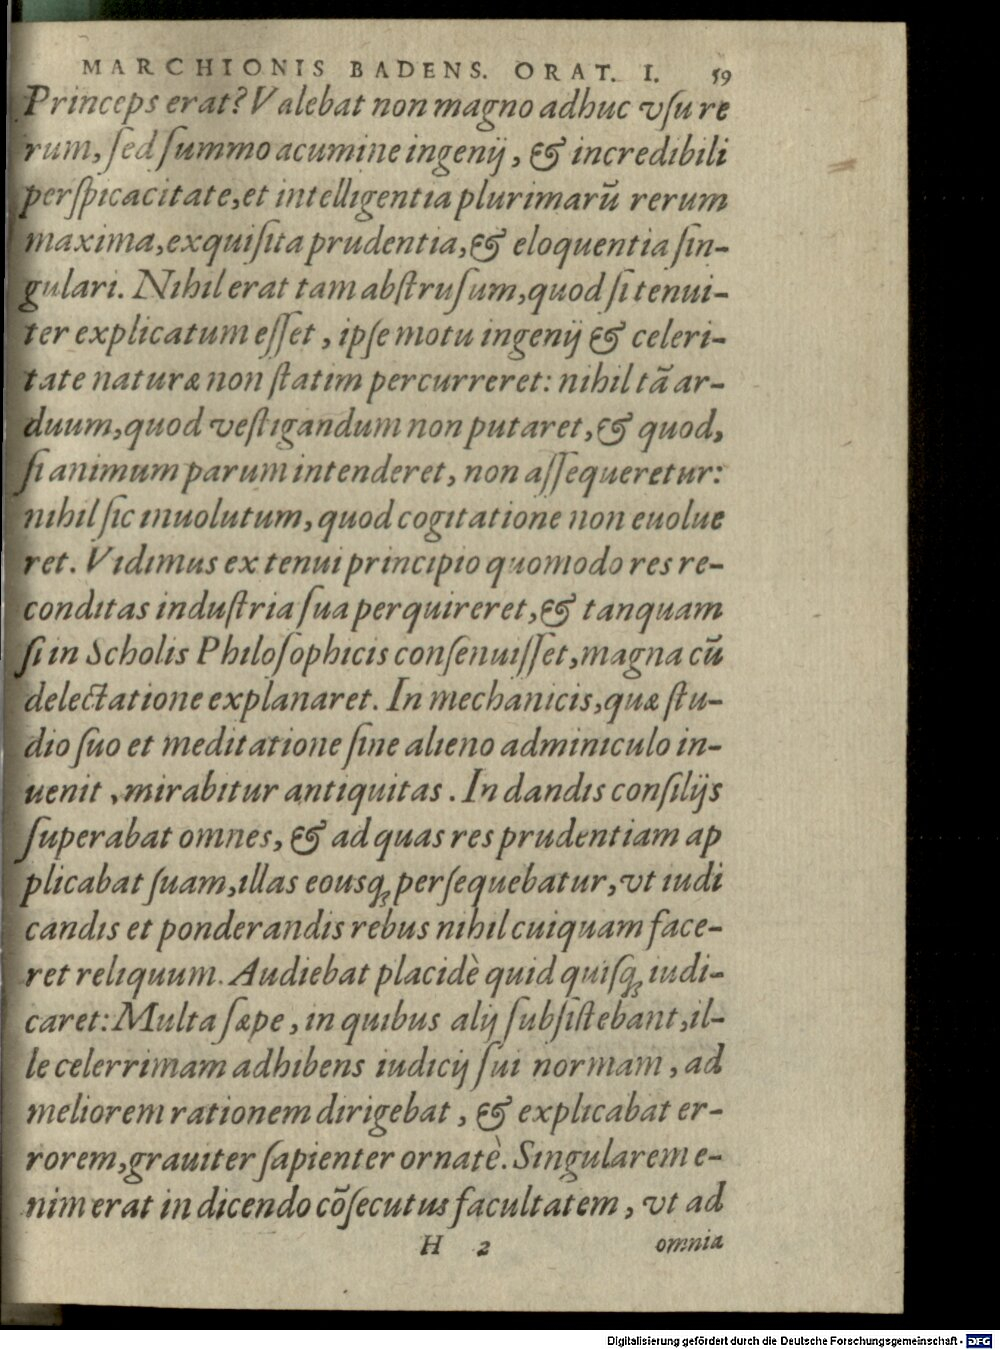 MARCHIONIS BADENS. ORAT. I. 59
Princeps erat? Valebat non magno adhuc vſu re
rum, ſed ſummo acumine ingenij, & incredibili
perſpicacitate, et intelligentia plurimarũ rerum
maxima, exquiſita prudentia, & eloquentia ſin-
gulari. Nihil erat tam abſtruſum, quod ſi tenui-
ter explicatum eſſet, ipſe motu ingenij & celeri-
tate naturæ non ſtatim percurreret: nihil tã ar-
duum, quod veſtigandum non putaret, & quod,
ſi animum parum intenderet, non aſſequeretur:
nihil ſic inuolutum, quod cogitatione non euolue
ret. Vidimus ex tenui principio quomodo res re-
conditas induſtria ſua perquireret, & tanquam
ſi in Scholis Philoſophicis conſenuiſſet, magna cũ
delectatione explanaret. In mechanicis, quæ ſtu-
dio ſuo et meditatione ſine alieno adminiculo in-
uenit, mirabitur antiquitas. In dandis conſilijs
ſuperabat omnes, & ad quas res prudentiam ap
plicabat ſuam, illas eousq; perſequebatur, vt iudi
candis et ponderandis rebus nihil cuiquam face-
ret reliquum. Audiebat placidè quid quiſq; iudi-
caret: Multa ſæpe, in quibus alij ſubſiſtebant, il-
le celerrimam adhibens iudicij ſui normam, ad
meliorem rationem dirigebat, & explicabat er-
rorem, grauiter ſapienter ornatè. Singularem e-
nim erat in dicendo cõſecutus facultatem, vt ad
H 2 omnia
Digitalisierung gefördert durch die Deutsche Forschungsgemeinschaft - DFG